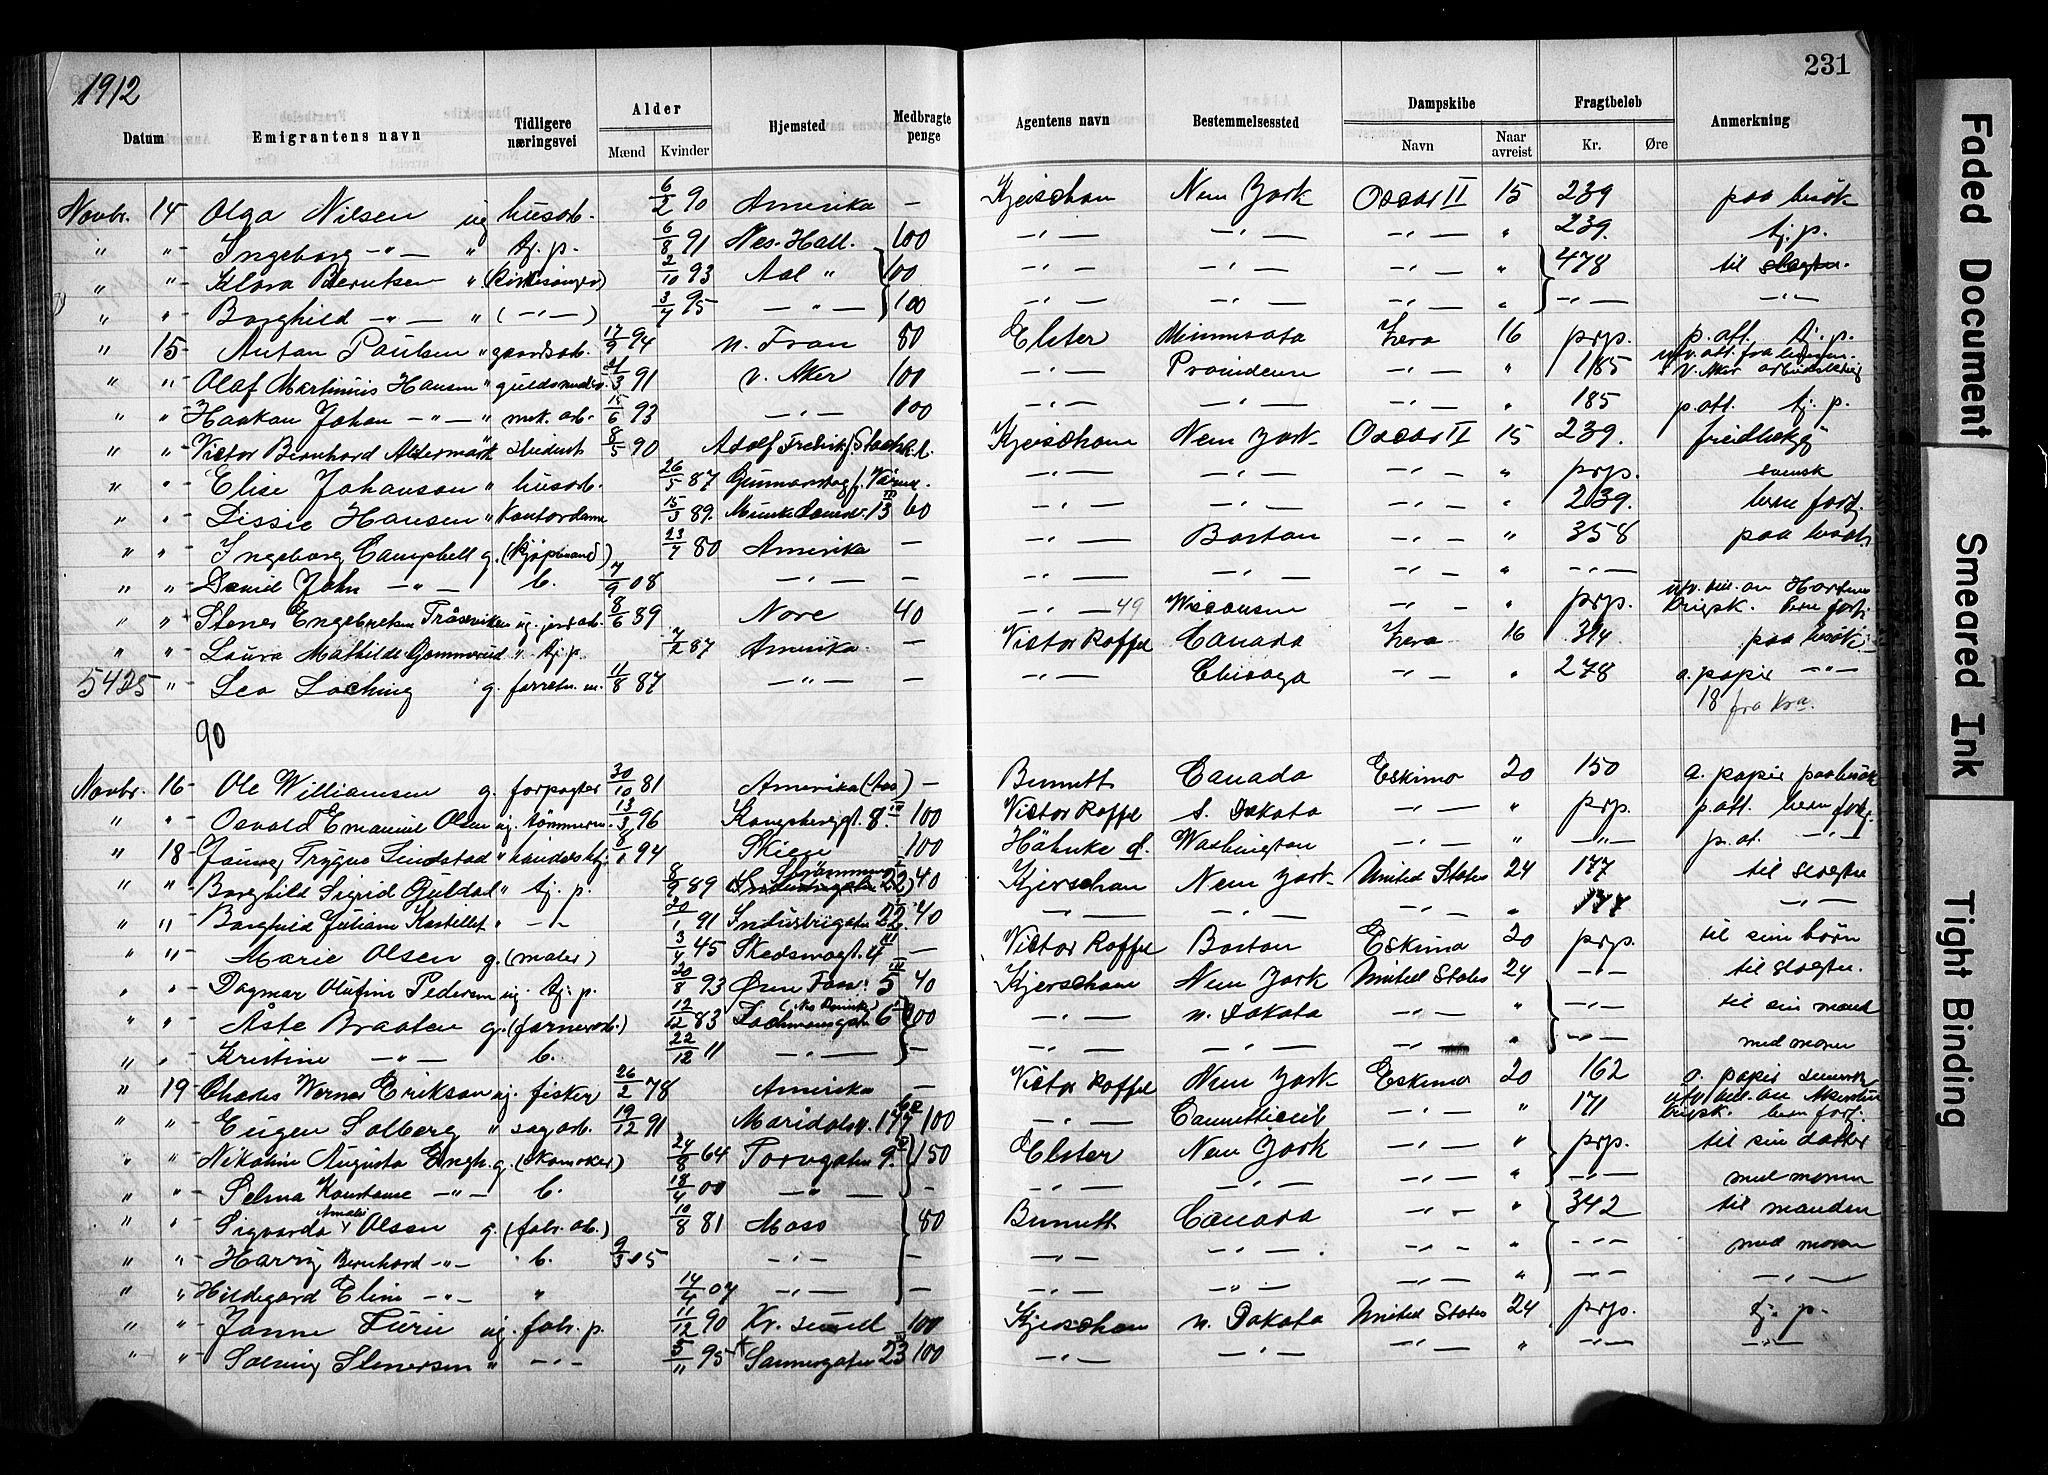 1912
231
Datum Emigrantens navn Tidligere næringsvei Alder Mænd Kvinder Hjemsted Medbragte penge Agentens navn Bestemmelsessted Dampskibe Navn Naar avreist Fragtbeløb Kr. Øre Anmerkning
Novbr. 14 Olga Nilsen ug husarb. 6/2 90 Amerika — Kjerschow New York Oscar II 15 239 paa besøk
" " Ingeborg —"— " tj. p. 6/8 91 Nes. Hall. 100 —"— —"— —"— " 239. tj. p.
" " Klara Berntsen " (kirkesanger) 2/10 93 Aal " 100 —"— —"— —"— " 478 til slegtn.
" " Borghild —"— " (—"—) 3/7 95 —"— 100 —"— —"— —"— " —"— —"—
" 15 Anton Paulsen " gaardsarb. 17/9 94 n. Fron 80 Elster Minnesota Hero 16 prp. p. att. tj. p.
" " Olaf Martinius Hansen " guldsmedsv. 21/3 91 v. Aker 100 —"— Providence —"— " 185 utv. att. fra v. Aker
" " Haakon Johan —"— " mek. arb. 15/6 93 —"— 100 —"— —"— —"— " 185 p. att. tj. p.
" " Victor Bernhard Aldermark student 8/5 90 Adolf Fredrik f. Stockh. l. Kjerschow New York Oscar II 15 239.
" " Elise Johanson " husarb. 26/5 87 Gunnarskog f. Värml. —"— —"— —"— " prp. svensk
" " Lissie Hansen " Kontordame 15/3 89. Munkedamsv. 13 III 60 —"— —"— —"— " 239. bern fortj.
" " Ingeborg Campbell g. (kjøpmand) 23/7 80 Amerika — —"— Boston —"— " 358 paa besøk
" " David John —"— b. 7/9 08 —"— — —"— —"— —"— " —"—
" " Stener Engebretsen Traaserviken ug. jordarb. 8/6 89 Nore 40 —"— 49 Wisconsin —"— " prp. utv. bev. an Hortens krigsk. bern fortj.
" " Laura Mathilde Gommerud " tj. p. 7/2 87 Amerika — Victor Roffel Canada Hero 16 394 paa besøk
5425 " Leo Loching g. forretn. m. 11/8 87 —"— — —"— Chicago —"— " 278 a. papir —"—
18 fra Kra.
90
Novbr. 16 Ole Williamsen g. forpagter 30/10 81 Amerika (Aas) — Bennett Canada Eskimo 20 150 a. papir paa besøk
" " Osvald Emanuel Olsen ug. tømmerm. 13/3 96 Kongsbergt. 8 III 100 Victor Roffel S. Dakota —"— " prp. p. att. bern fortj.
" 18 Trygve Lindstad " handelsbetj. 8/1 94 Skien 100 Höhnke d. Washington —"— " —"— p. at. —"—
" " Borghild Sigrid Guldal " tj. p. 8/9 89 Strømmen 22 40 Kjerschow New York United States 24 177 til slegtn
" " Borghild Juliane Kastellet " —"— 20/1 91 Industrigaten 22 40 —"— —"— —"— " 177 —"—
" " Marie Olsen g. (maler) 3/4 45 Skedsmogt. 4 III — Victor Roffel Boston Eskimo 20 prp. til sine børn
" " Dagmar Olufine Pedersen ug. tj. p. 20/8 93 Øvre Foss 5 III 40 Kjerschow New York United States 24 —"— til slegtn.
" " Åste Braaten g. (farmerarb.) 12/12 83 Tochmansgaten 6 100 —"— n. Dakota —"— " —"— til sin mand
" " Kristine —"— b. 22/12 11 —"— — —"— —"— —"— " —"— med moren
" 19 Charles Werner Erikson ug. fisker 26/2 78 Amerika — Victor Roffel New York Eskimo 20 162 a. papir svensk
" " Eugen Solberg " sagarb. 19/12 91 Maridalsv. 177 100 —"— Connecticut —"— " 171 utv. bev. an Akershus krigsk. bern fortj.
" " Nikoline Augusta Engh. g. (skomaker) 24/8 64 Torvgaten 9. II 150 Elster New York —"— " prp. til sin datter
" " Selma Konstanse —"— b. 18/4 00 —"— — —"— —"— —"— " —"— med moren
" " Sigvarda Amalie Olsen g. (fabr. arb.) 10/8 81 Moss 80 Bennett Canada —"— " 342 til manden
" " Harry Bernhard —"— b. 9/3 05 —"— — —"— —"— —"— " —"— med moren
" " Hildegard Eline —"— " 14/4 07 —"— — —"— —"— " —"— —"—
" " Janne Furu ug. fabr. p. 11/12 90 Kr. sund 100 Kjerschow n. Dakota United States 24 prp. tj. p.
" " Solveig Stenersen " —"— 5/11 95 Sannergaten 23 IV 100 —"— —"— —"— " —"— —"—
Faded Document
Smeared Ink
Tight Binding